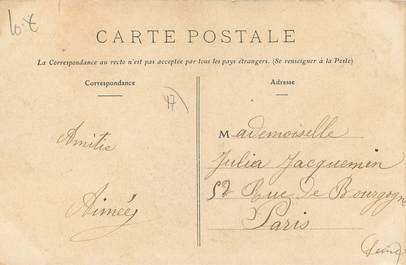 10.€
CARTE POSTALE
La Correspondance au recto n'est pas acceptée par tous les pays étrangers. (Se renseigner à la Poste)
Correspondance
Adresse
47
Amitié
Aimée
Mademoiselle
Julia Jacquemin
52 Rue de Bourgogne
Paris
(Seine)